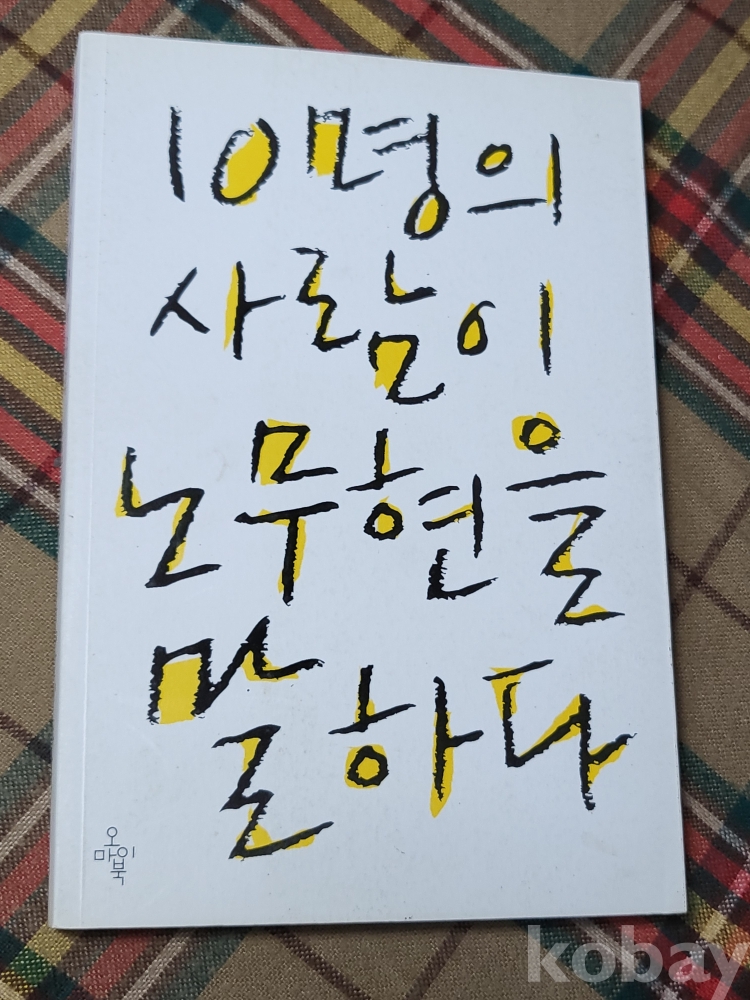 10명의
사람이
노무현을
말하다
오
마이
북
kobay